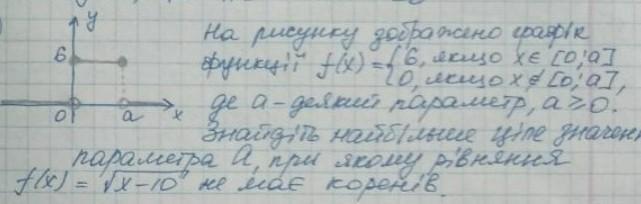 y
6
0 a x
На рисунку зображено графік
функції f(x) = {6, якщо x ∈ [0; a]
0, якщо x ∉ [0; a],
де a - деякий параметр, a ≥ 0.
Знайдіть найбільше ціле значенн
параметра a, при якому рівняння
f(x) = √x-10 не має коренів.